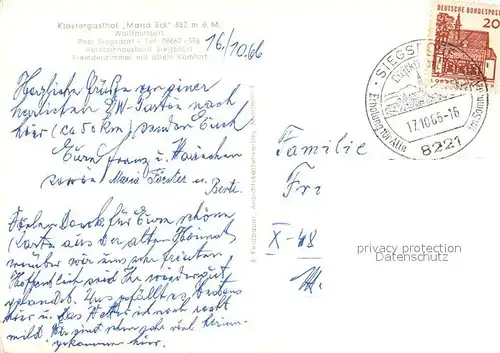 Klostergasthof „Maria Eck" 882 m ü. M.
Wallfahrtsort
Post Siegsdorf - Tel. 08662 - 596
Autobahnausfahrt Siegsdorf
Fremdenzimmer mit allem Komfort
16/10.66
DEUTSCHE BUNDESPOST
20
SIEGSDORF
Erholung für Alle
17.10.66-16
8221
Herzliche Grüße von einer
herrlichen PKW-Partie nach
hier (ca 50 km) senden Euch
Eure Franz u. Mariechen
sowie Maria Förster u.
Berti.
Vielen Dank für Eure schöne
Karte aus der alten Heimat
worüber wir uns sehr freuten
Hoffentlich seid Ihr wieder gut
gelandet. Uns gefällt es bestens
hier u. das Wetter ist noch recht
mild. Wir sind schon sehr viel herum-
gekommen hier.
Familie
Fr
X-48
privacy protection
Datenschutz